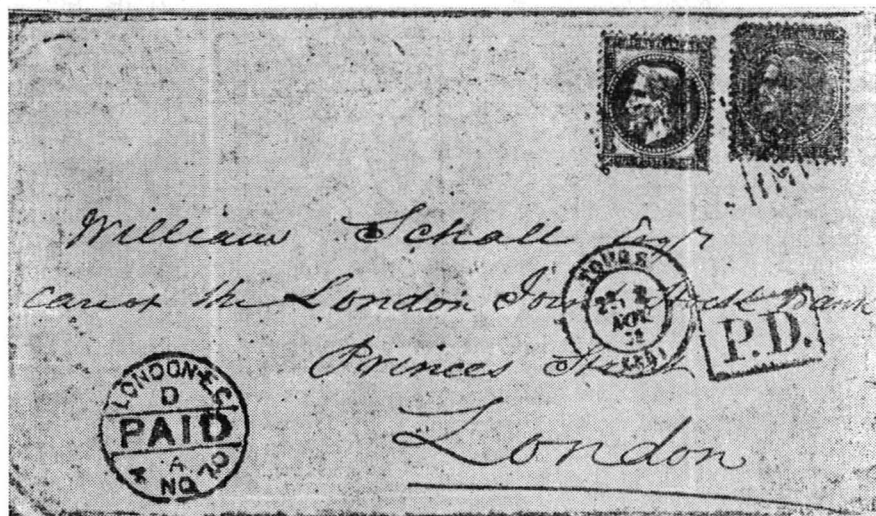 William Schall Esqr
care of the London Joint Stock Bank
Princes Street
London
TOURS
P.D.
LONDON-E.C.
D
PAID
A
4 NO 70